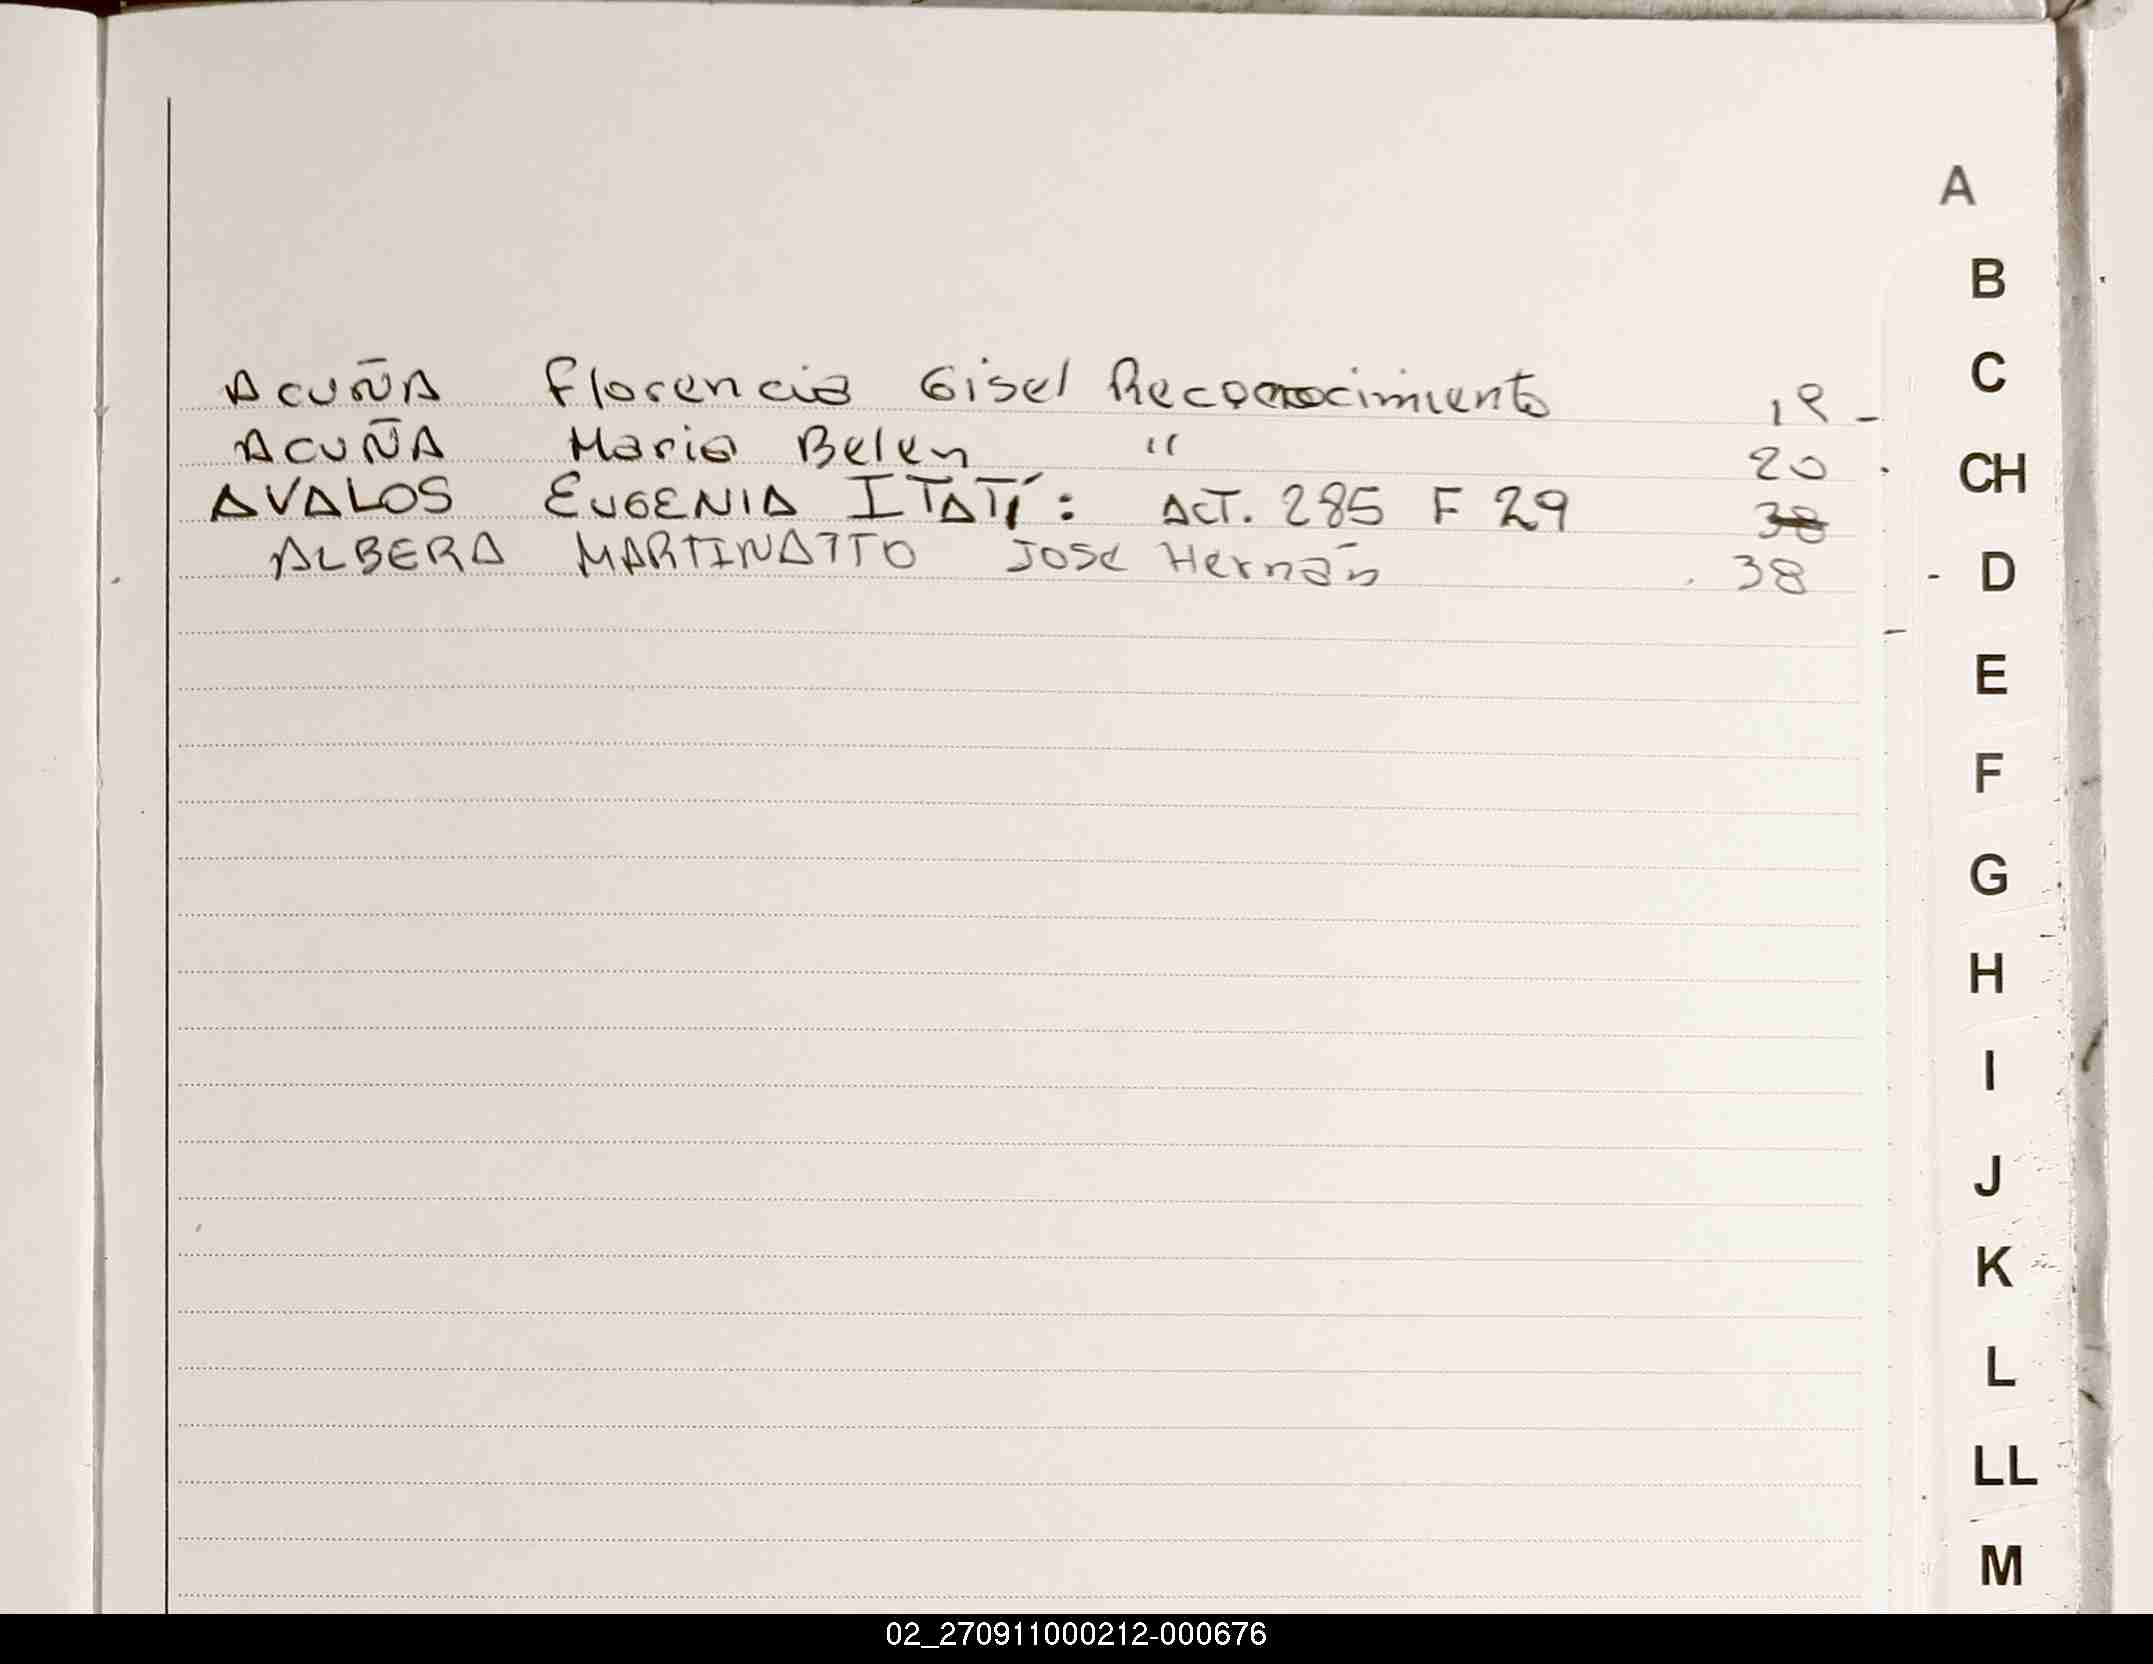 A
B
C
ACUÑA Florencia Gisel Reconocimiento 19 -
ACUÑA Maria Belen " 20
CH
AVALOS EUGENIA ITATÍ: ACT. 285 F 29 38
ALBERA MARTINATTO Jose Hernán 38
D
E
F
G
H
I
J
K
L
LL
M
02_270911000212-000676